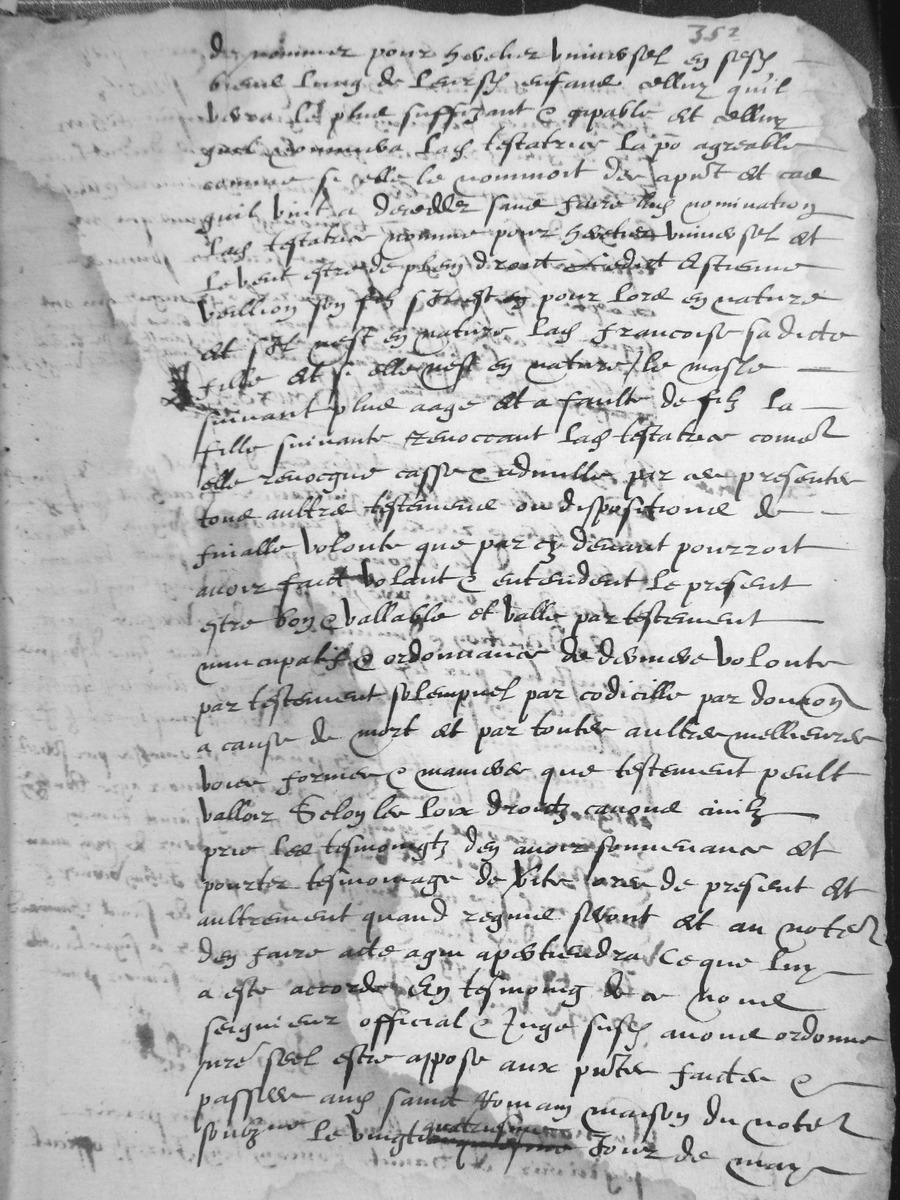 352
de nommer pour heretier universel en sesd
biens lung de leursd enfans celluy quil
verra le plus suffizant & capable et celluy
quel nommera lad testatrice la po agreable
comme si elle le nommoit des a pnt et cas
quil vint a decedder sans faire lad nomination
lad testatrice nomme pour heretier universel et
le veut estre de plein droit led Estienne
veillion son filz sil est en pour lors en nature
et sil nest en nature lad francoise sa dicte
fille et si elle nest en nature / le masle
suivant plus aage et a faulte de filz la
fille suivante revoccant lad testatrice comme
elle revocque casse & adnulle par ces presentes
tous aultres testemens ou dispositions de
finalle volonte que par cy devant pourroit
avoir faict volant & entendent le present
estre bon & vallable et valle par testement
nuncupatif & ordonnance de derniere volonte
par testement solempnel par codicille par donaon
a cause de mort et par toutes aultres mellieures
voies formes & manieres que testement peult
valloir Selon les loix droitz canons civilz
prie les tesmoingtz den avoir souvenance et
pourter tesmoinage de verite ores de present et
aultrement quand requis seront et au notere
den faire acte a qui apertiendra Ce que luy
a este accorde En tesmoing de ce nous
seigneur official & Juge susd avons ordonne
nre seel estre appose aux pntes faictes &
passees aud sainct Romain maison du notere
soubzne le vingt quatriesme Jour de may